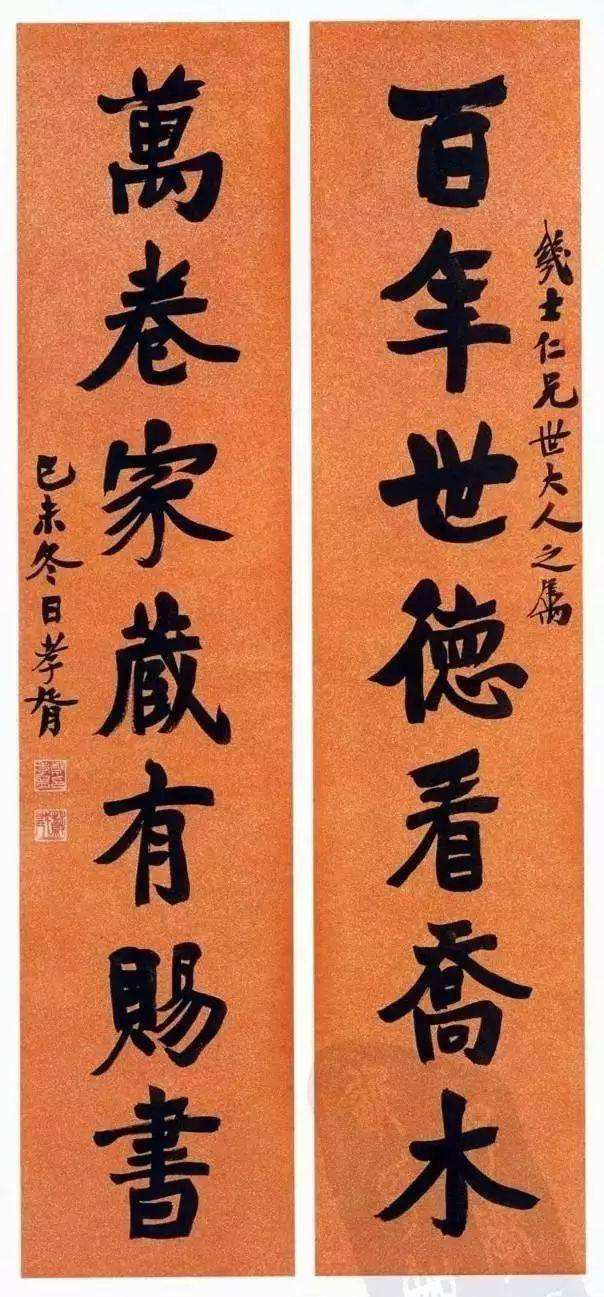 幾士仁兄世大人之属
百年世德看喬木
萬卷家藏有賜書
己未冬日孝胥